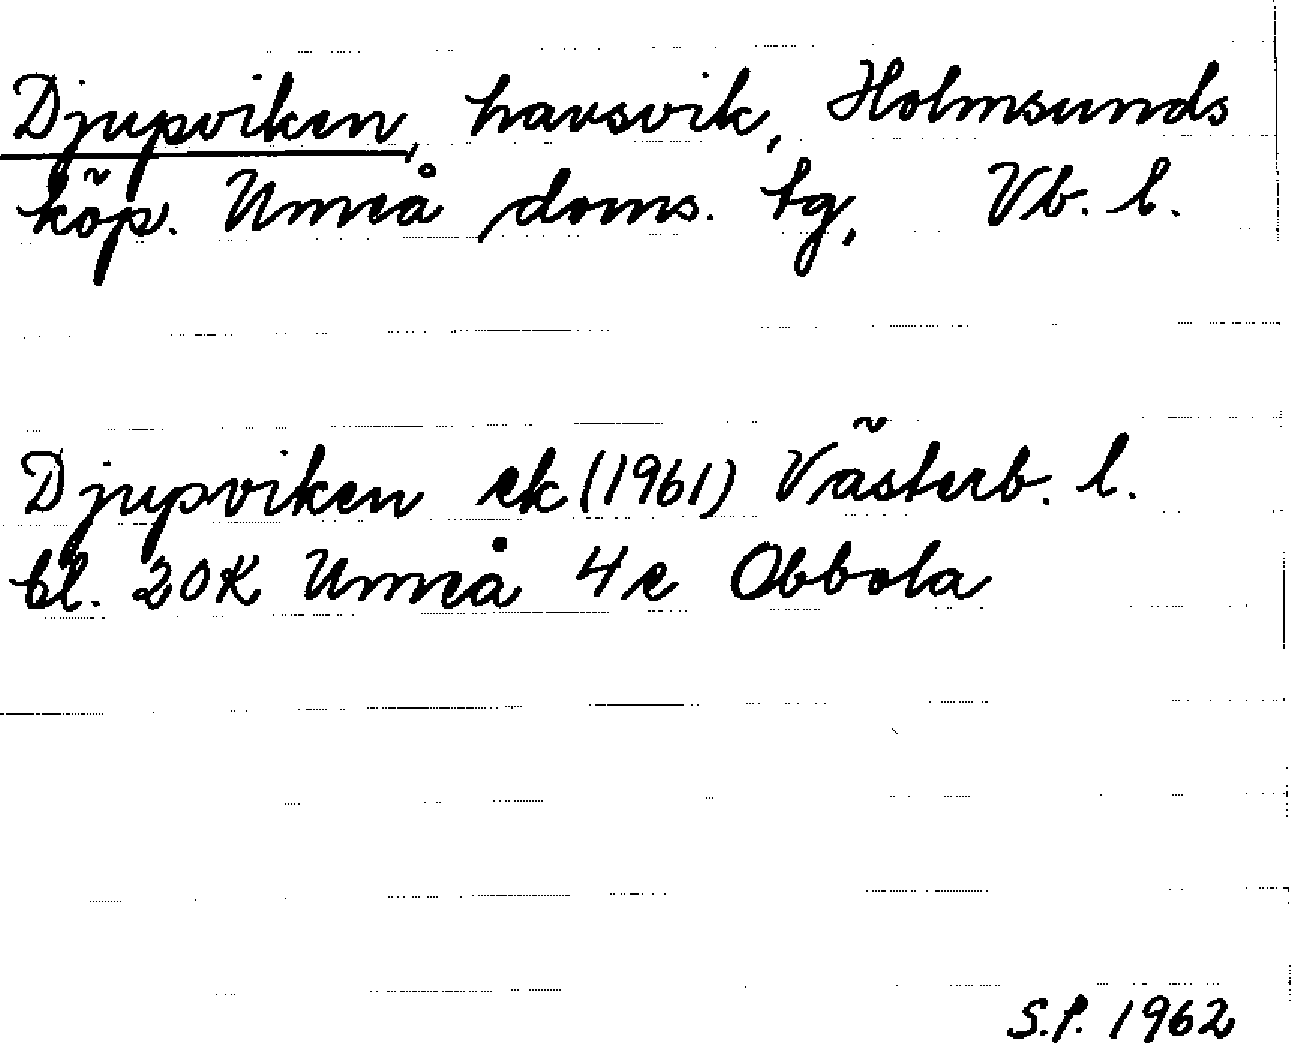 Djupviken, havsvik, Holmsunds
köp. Umeå doms. tg, Vb. l.
Djupviken ek (1961) Västerb. l.
bl. 20K Umeå 4e Obbola
S.P. 1962